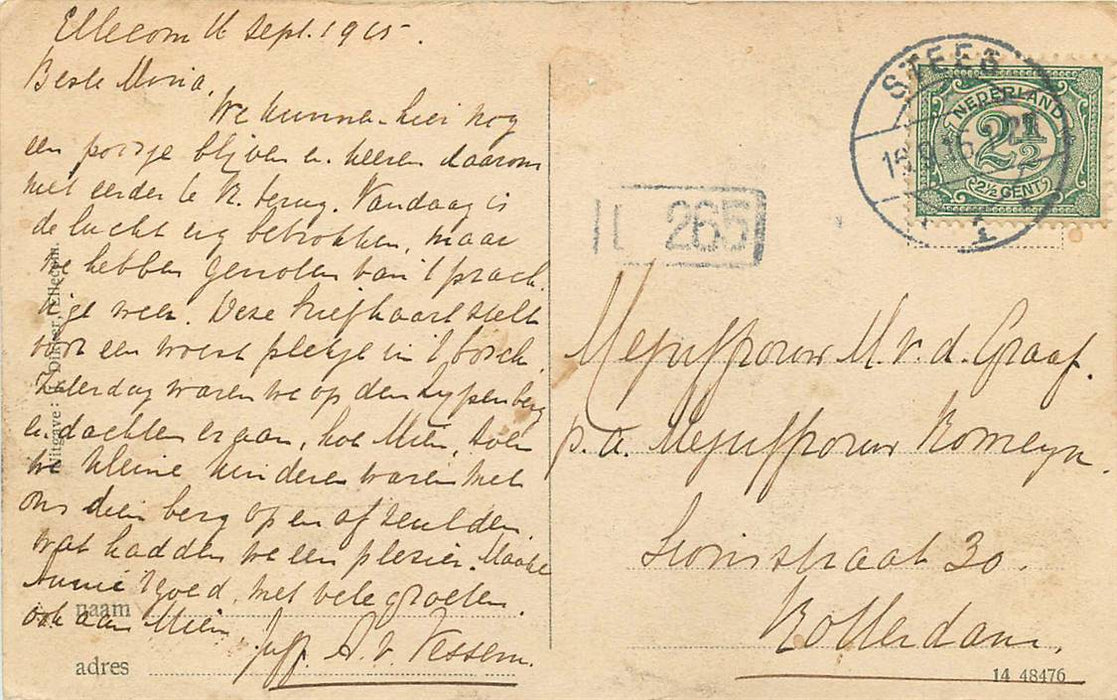 Ellecom 16 Sept. 1915.
Beste Maria,
We kunnen hier nog
een poosje blijven en keeren daarom
niet eerder te R. terug. Vandaag is
de lucht erg betrokken, maar
we hebben genoten van 't prach
tige weer. Deze briefkaart stelt
voor een woest plekje in 't bosch.
Zaterdag waren we op den Zypenberg
en dachten eraan, hoe Mien, toen
we kleine kinderen waren met
ons dien berg op en af zeulden
wat hadden we een plezier. Maakt
Annie 't goed, met vele groeten.
ook aan Mien,
Juff. A. v. Vessem.
naam
adres
Uitgave: Ellecom.
STEEG
NEDERLAND
2½
2½ CENT
1
265
Mejuffrouw M. v. d. Graaf.
p.a. Mejuffrouw Romeyn.
30.
Rotterdam.
14 48476